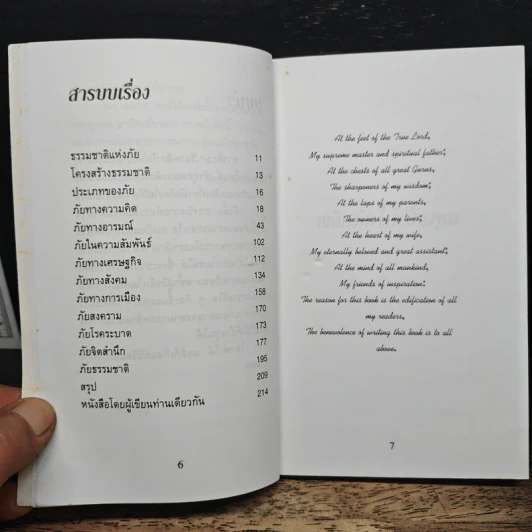 สารบบเรื่อง
ธรรมชาติแห่งภัย 11
โครงสร้างธรรมชาติ 13
ประเภทของภัย 16
ภัยทางความคิด 18
ภัยทางอารมณ์ 43
ภัยในความสัมพันธ์ 102
ภัยทางเศรษฐกิจ 112
ภัยทางสังคม 134
ภัยทางการเมือง 158
ภัยสงคราม 170
ภัยโรคระบาด 173
ภัยจิตสำนึก 177
ภัยธรรมชาติ 195
สรุป 209
หนังสือโดยผู้เขียนท่านเดียวกัน 214
6
At the feet of the True Lord,
My supreme master and spiritual father;
At the chests of all great Gurus,
The sharpeners of my wisdom;
At the laps of my parents,
The owners of my lives;
At the heart of my wife,
My eternally beloved and great assistant;
At the mind of all mankind,
My friends of inspiration:
The reason for this book is the edification of all
my readers,
The benevolence of writing this book is to all
above.
7